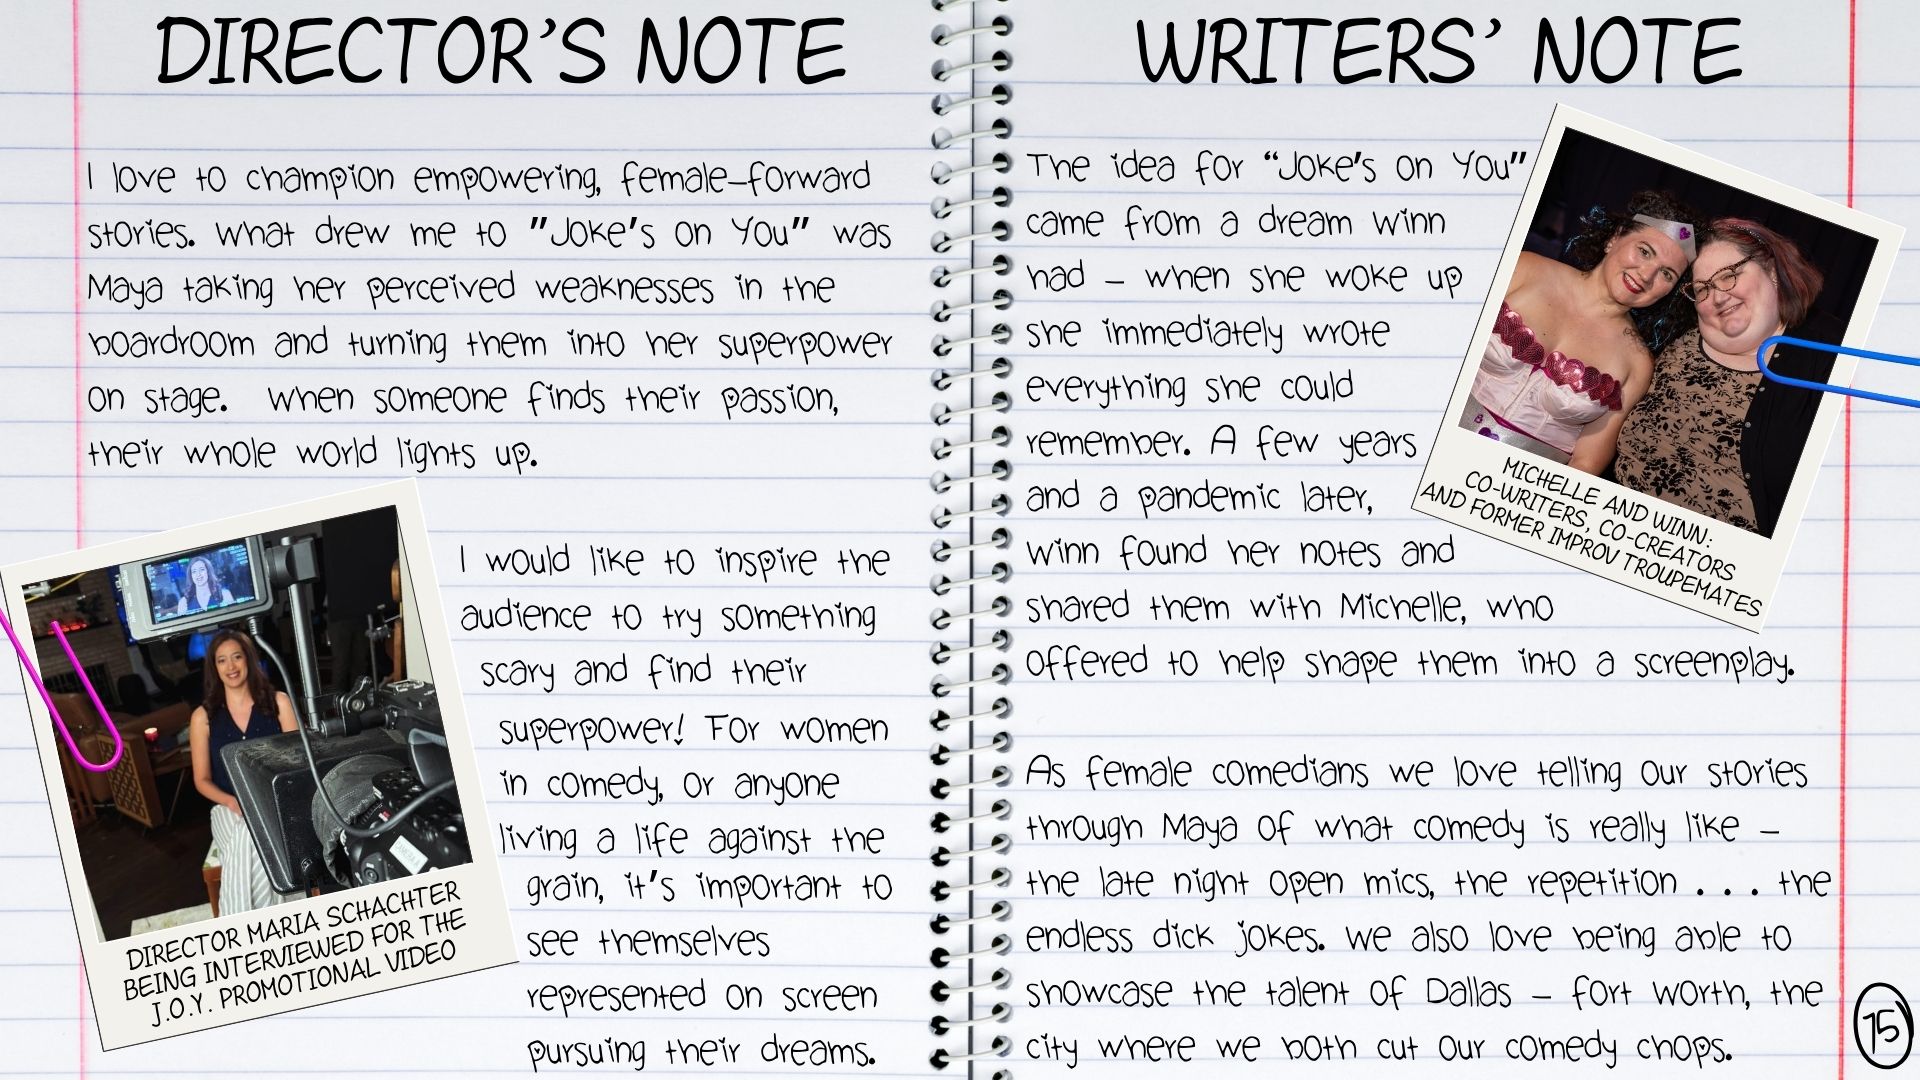 DIRECTOR'S NOTE
I love to champion empowering, female-forward
stories. What drew me to "Joke's on You" was
Maya taking her perceived weaknesses in the
boardroom and turning them into her superpower
on stage.  When someone finds their passion,
their whole world lights up.
I would like to inspire the
audience to try something
scary and find their
superpower! For women
in comedy, or anyone
living a life against the
grain, it's important to
see themselves
represented on screen
pursuing their dreams.
DIRECTOR MARIA SCHACHTER
BEING INTERVIEWED FOR THE
J.O.Y. PROMOTIONAL VIDEO
WRITERS' NOTE
The idea for "Joke's on You"
came from a dream Winn
had – when she woke up
she immediately wrote
everything she could
remember. A few years
and a pandemic later,
Winn found her notes and
shared them with Michelle, who
offered to help shape them into a screenplay.
MICHELLE AND WINN:
CO-WRITERS, CO-CREATORS
AND FORMER IMPROV TROUPEMATES
As female comedians we love telling our stories
through Maya of what comedy is really like –
the late night open mics, the repetition . . . the
endless dick jokes. We also love being able to
showcase the talent of Dallas – Fort Worth, the
city where we both cut our comedy chops.
15